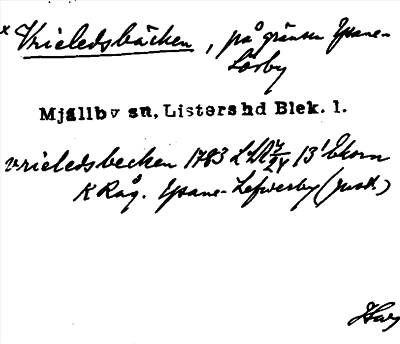 x Vrieledsbäcken, på gränsen Ysane-
Lörby
Mjällby sn, Listers hd Blek. l.
vrieledsbecken 1783 LLA 13' Ekorn
K Råg. Ysane-Lefwerby (